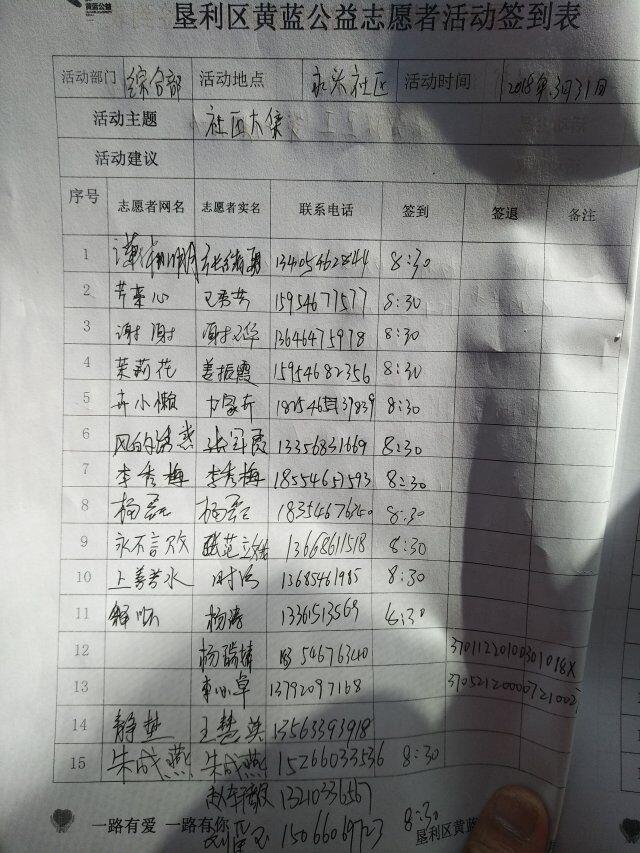 黄蓝公益
垦利区黄蓝公益志愿者活动签到表
活动部门 综合部 活动地点 永兴社区 活动时间 2018年3月31日
活动主题 社区大集
活动建议
序号 志愿者网名 志愿者实名 联系电话 签到 签退 备注
1 8:30
2 15954677577 8:30
3 13646475978 8:30
4 茉莉花 姜振霞 15954682356 8:30
5 卉小懒 8:30
6 风的诱惑 13356831669 8:30
7 李秀梅 李秀梅 18554651593 8:30
8 杨磊 杨磊 18354676340 8:30
9 永不言败 13668611518 8:30
10 上善若水 13685461985 8:30
11 杨涛 13361513569 8:30
12 54676340
13 13792097168
14 静楚 王楚 13563393918
15 朱成燕 朱成燕 15266033536 8:30
13210336567
一路有爱 一路有你 15066069723 8:30 垦利区黄蓝